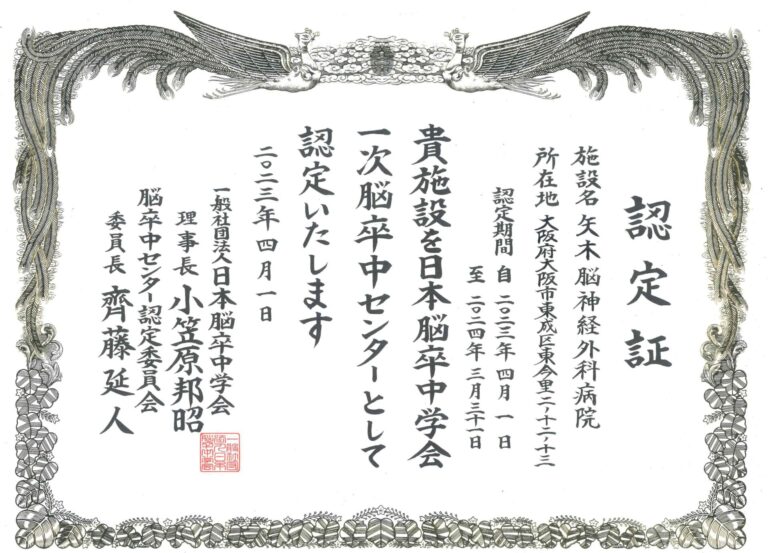 認定証
施設名 矢木脳神経外科病院
所在地 大阪府大阪市東成区東今里二ノ十二ノ十三
認定期間 自 二〇二三年 四月 一日
至 二〇二四年 三月三十一日
貴施設を日本脳卒中学会
一次脳卒中センターとして
認定いたします
二〇二三年 四月 一日
一般社団法人日本脳卒中学会
理事長 小笠原邦昭
脳卒中センター認定委員会
委員長 齊藤延人